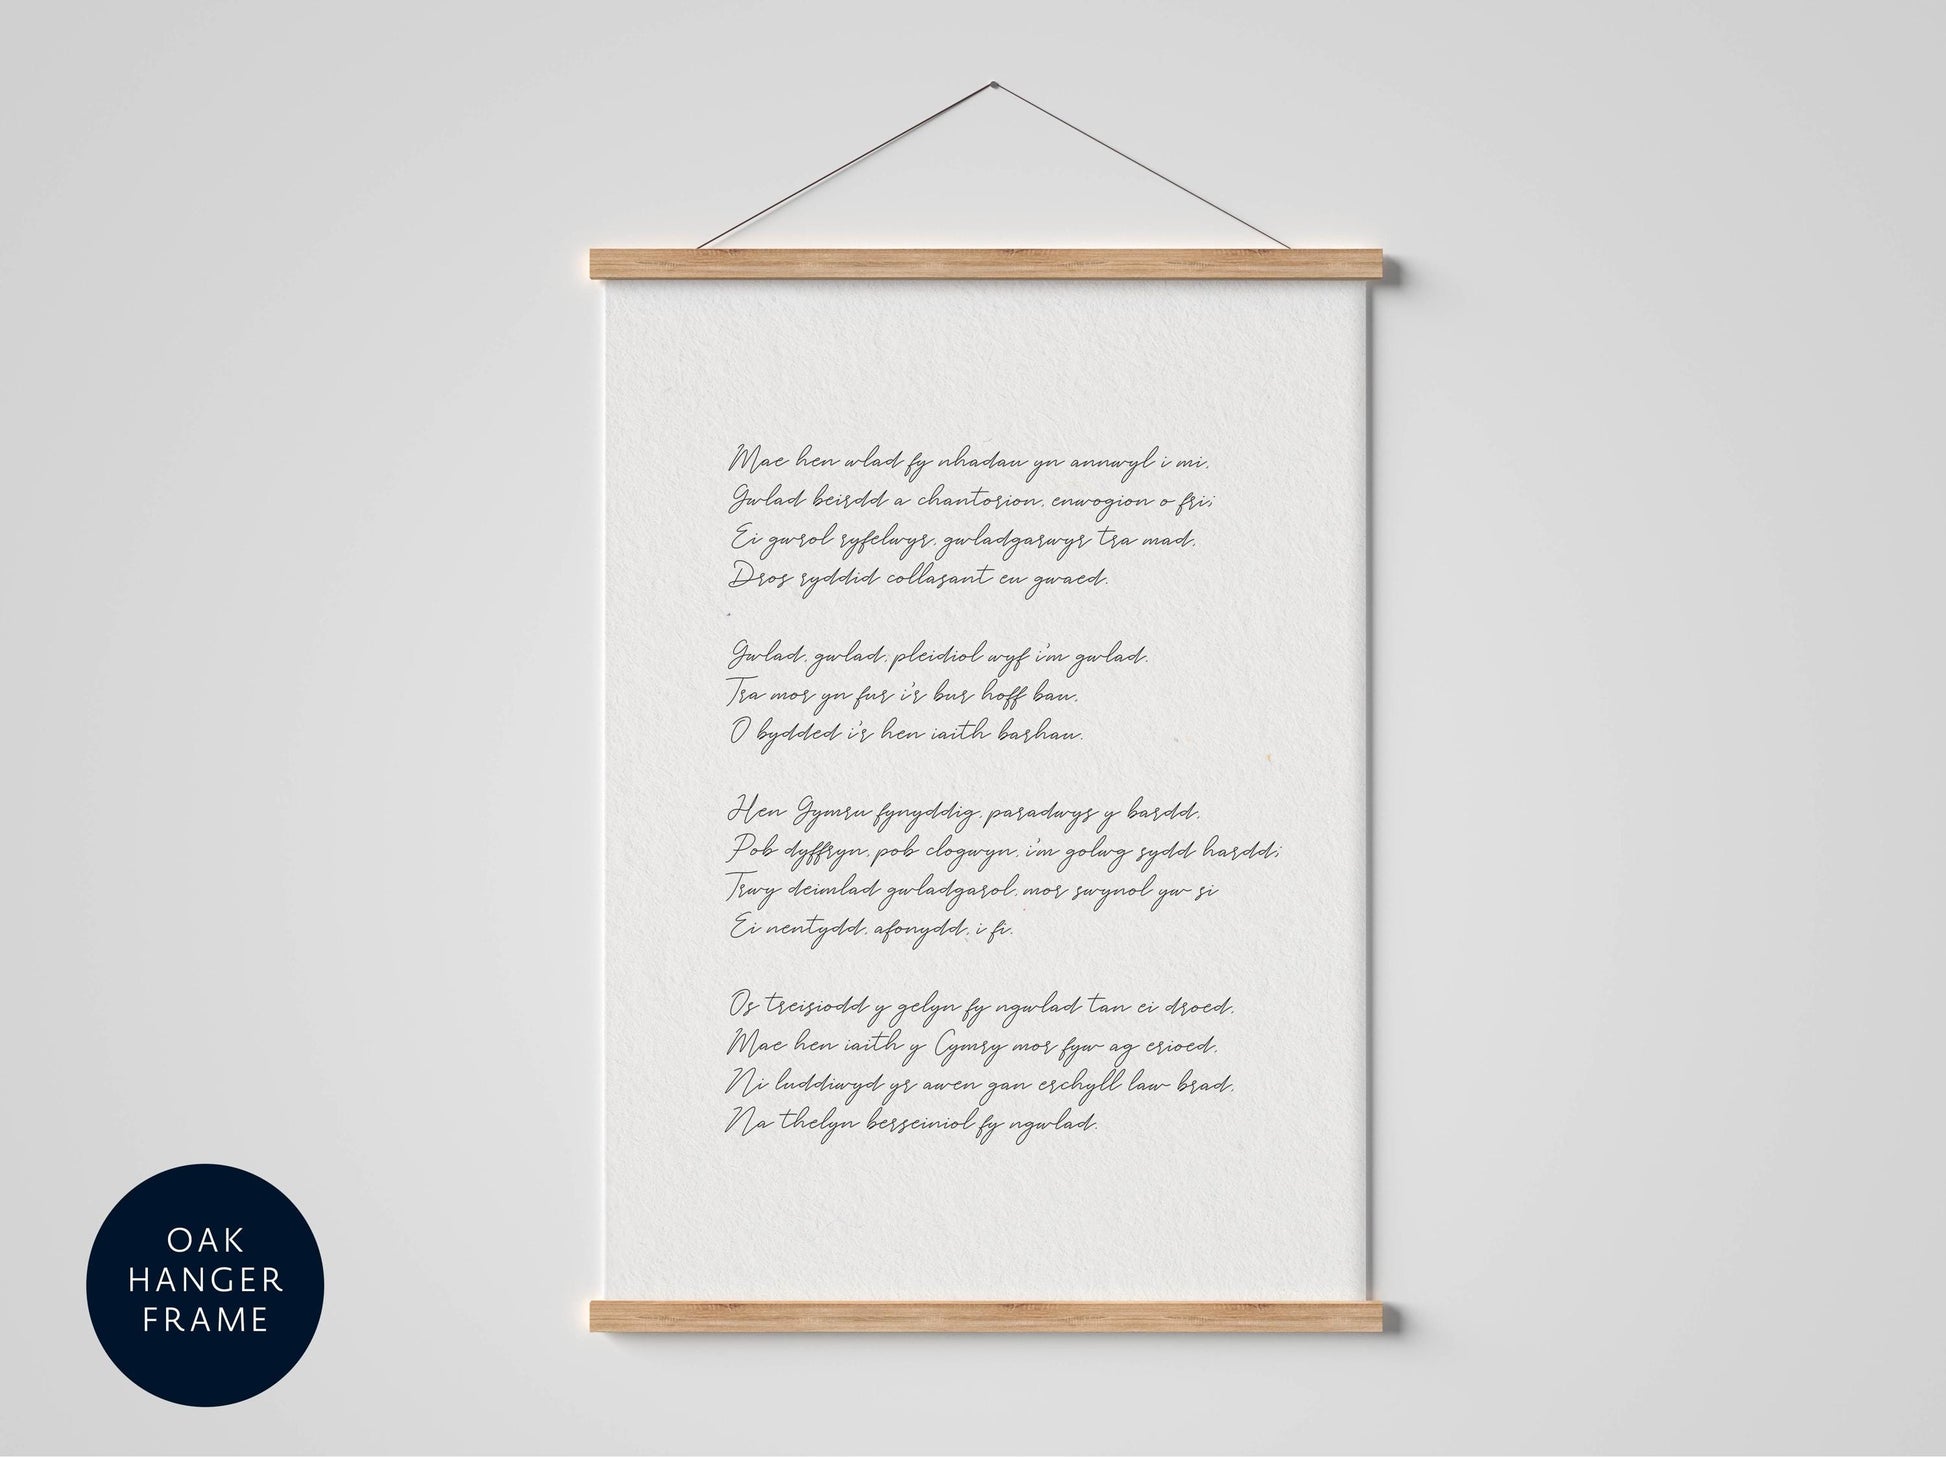 Mae hen wlad fy nhadau yn annwyl i mi,
Gwlad beirdd a chantorion, enwogion o fri;
Ei gwrol ryfelwyr, gwladgarwyr tra mad,
Dros ryddid collasant eu gwaed.
Gwlad, gwlad, pleidiol wyf i'm gwlad.
Tra mor yn fur i'r bur hoff bau,
O bydded i'r hen iaith barhau.
Hen Gymru fynyddig, paradwys y bardd,
Pob dyffryn, pob clogwyn, i'm golwg sydd hardd;
Trwy deimlad gwladgarol, mor swynol yw si
Ei nentydd, afonydd, i fi.
Os treisiodd y gelyn fy ngwlad tan ei droed,
Mae hen iaith y Cymry mor fyw ag erioed,
Ni luddiwyd yr awen gan erchyll law brad,
Na thelyn berseiniol fy ngwlad.
OAK
HANGER
FRAME